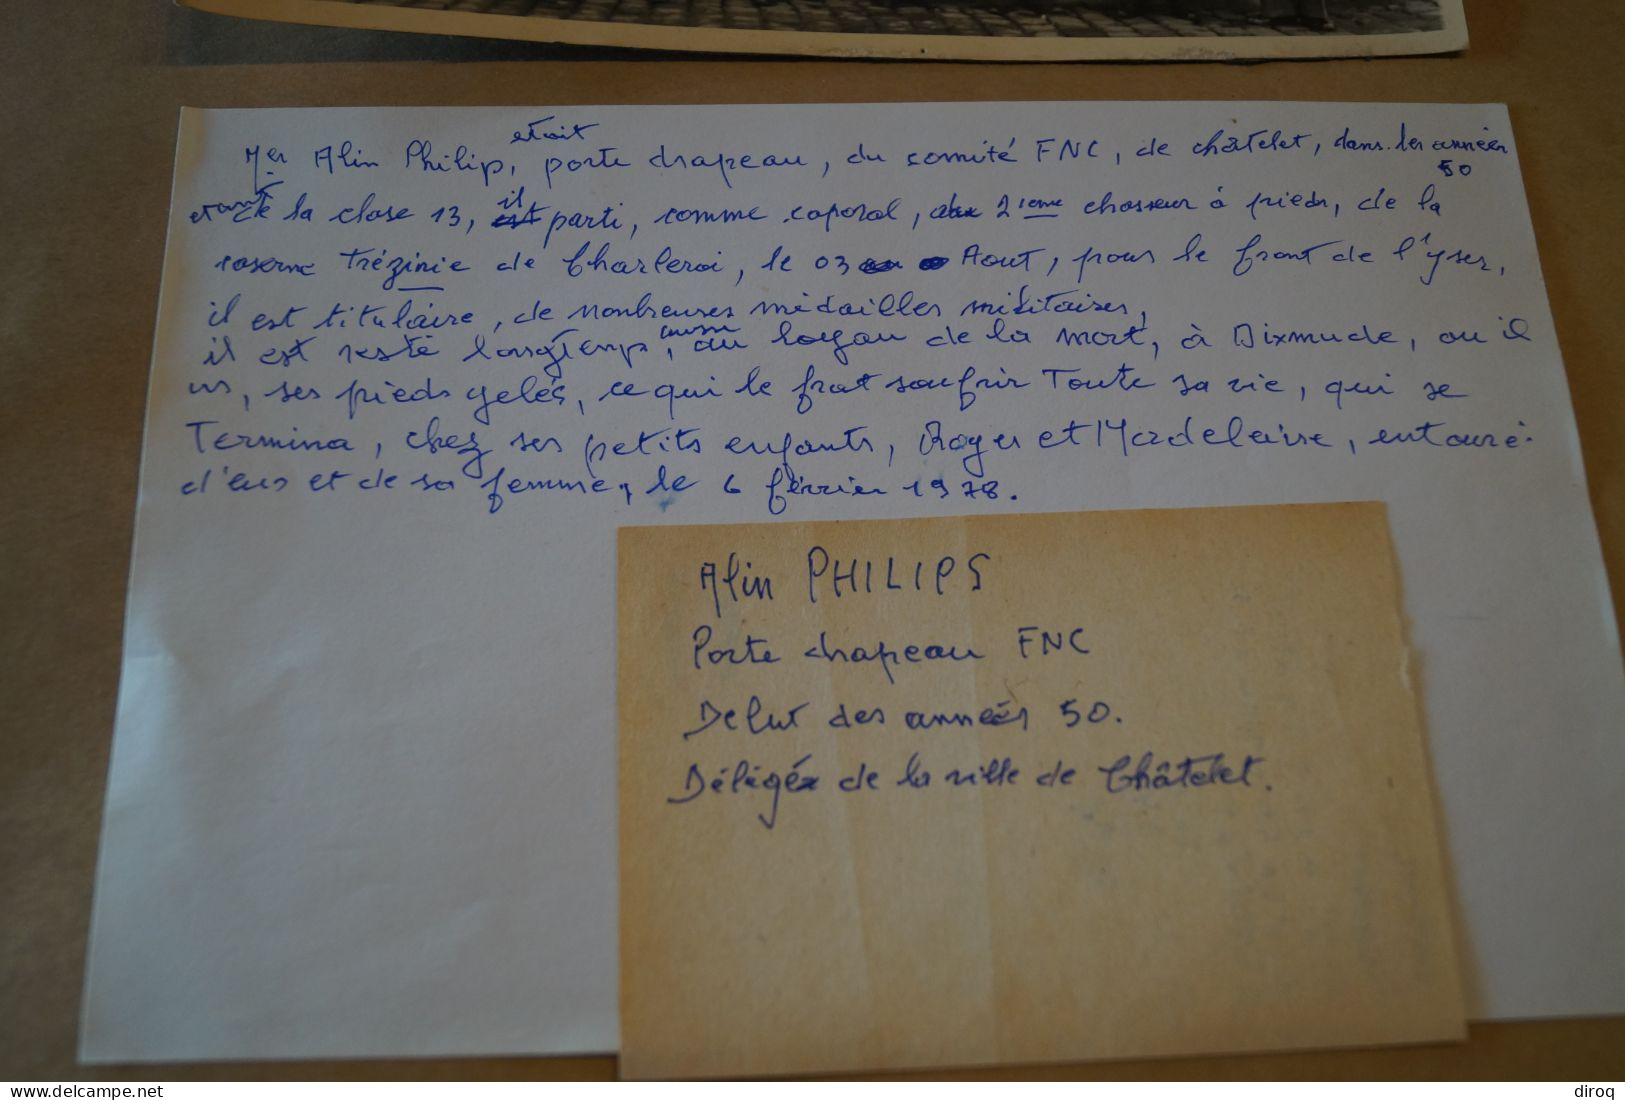 Mer Alin Philip, etait porte drapeau, du comité FNC, de châtelet, dans les années 50
etant de la clase 13, il parti, comme caporal, au 2ieme chasseur à pieds, de la
caserne Trézinie de Charleroi, le 03 Aout, pour le front de l'yser,
il est titulaire, de nombreuses médailles militaires,
il est resté longtemps, aussi au boyau de la mort, à Dixmude, ou il
us, ses pieds gelés, ce qui le frat soufrir Toute sa vie, qui se
Termina, chez ses petits enfants, Roger et Madeleine, entouré
d'eus et de sa femme, le 6 février 1978.
Alin PHILIPS
Porte drapeau FNC
Debut des années 50.
Délégé de la ville de Châtelet.
delcampe.net
diroq